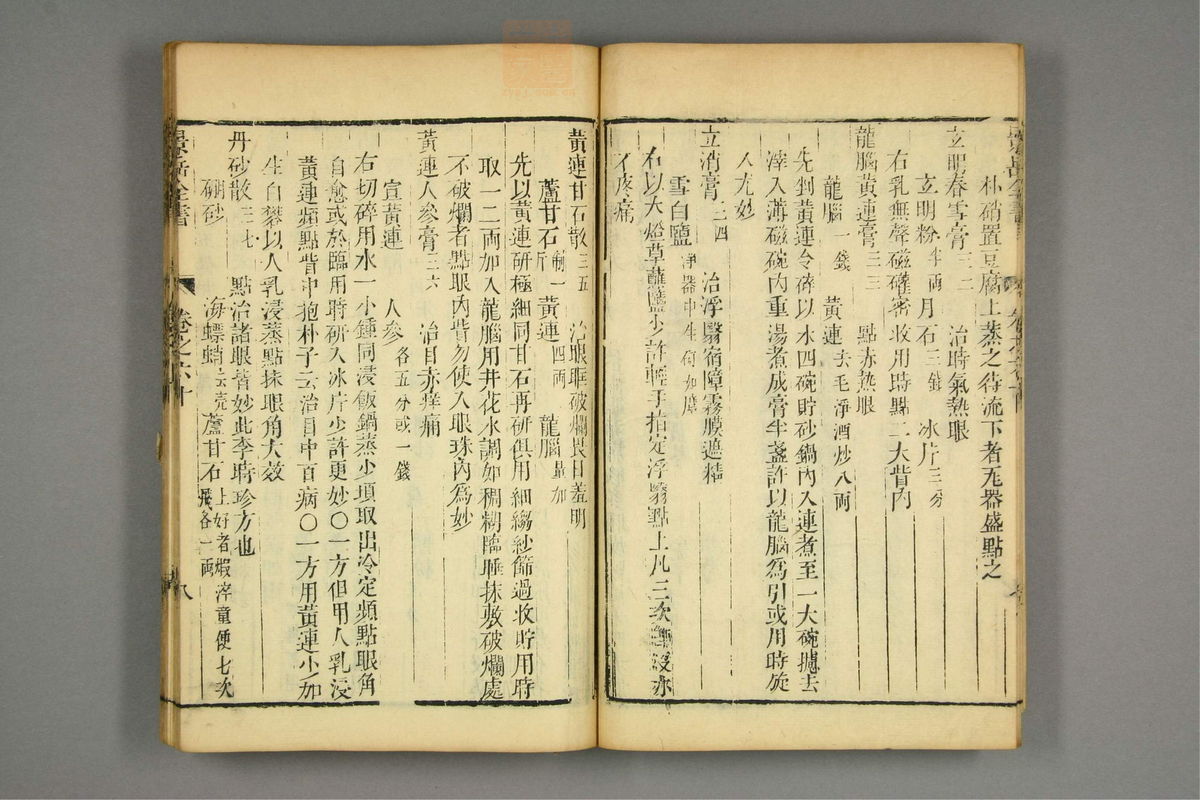 朴硝置豆腐上蒸之待流下者瓦器盛點之
玄明春雪膏三二 治時氣熱眼
玄明粉半両月石三錢 冰片三分
右乳無聲磁確密收用時點二大眥内
龍腦黄連膏三三 點赤熱眼
龍腦一錢 黄連去毛淨酒炒八両
先剉黄連令碎以水四碗貯砂鍋内入連煮至一大碗攄去
滓入薄磁碗内重湯煮成膏半盞許以龍腦為引或用時旋
入尤妙
立消膏三四 治浮翳宿障霧膜遮精
雪白鹽淨器中生研如塵
右以大燈草蘸鹽少許輕手指定浮翳點上凡三次即没亦
不疼痛
黄連甘石散三五 治眼眶破爛畏日羞明
蘆甘石制一斤 黄連四両 龍腦量加
先以黄連研極細同甘石再研俱用細縐紗篩過收貯用時
取一二両加入龍腦用井花水調如稠糊臨睡抹敷破爛處
不破爛者點眼内眥勿使入眼珠内為妙
黄連人參膏三六 治目赤痒痛
宣黄連 人參各五分或一錢
右切碎用水一小鍾同浸飯鍋蒸少頃取出冷定頻點眼角
自愈或於臨用時研入冰片少許更妙〇一方但用人乳浸
黄連頻點眥中抱朴子云治目中百病〇一方用黄連少加
生白礬以人乳浸蒸點抹眼角大效
丹砂散三七 點治諸眼皆妙此李時珍方也
硼砂 海螵蛸去壳 蘆甘石上好者煅淬童便七次飛各一両
景岳全書 卷之六十 八